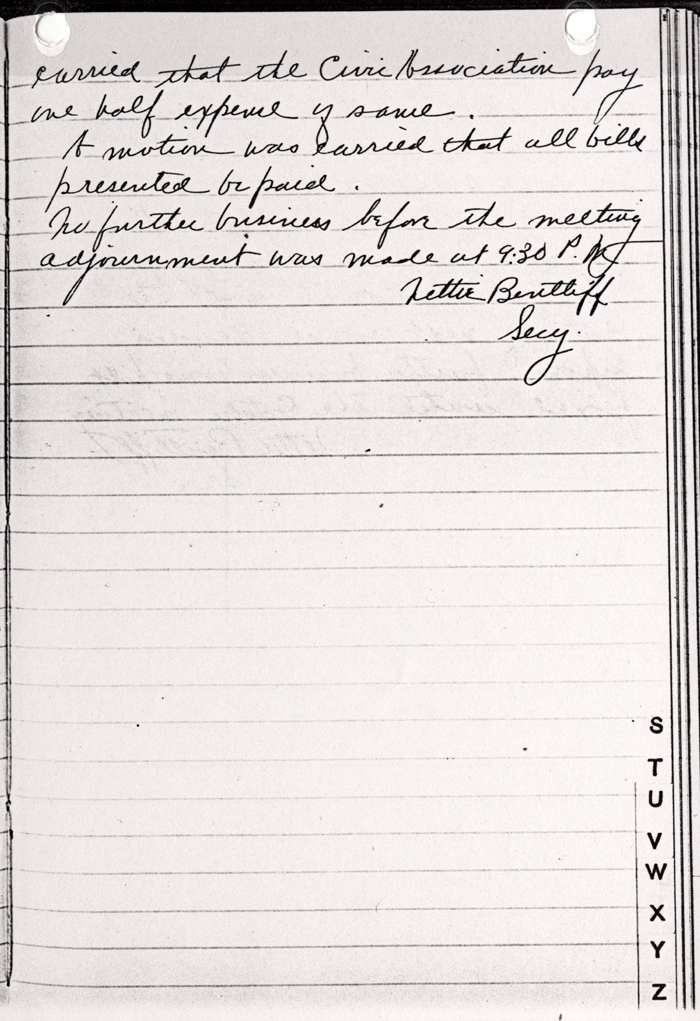 carried that the Civic Association pay
one half expense of same.
A motion was carried that all bills
presented be paid.
No further business before the meeting
adjournment was made at 9:30 P.M
Nettie Bentliff
Secy.
S
T
U
V
W
X
Y
Z